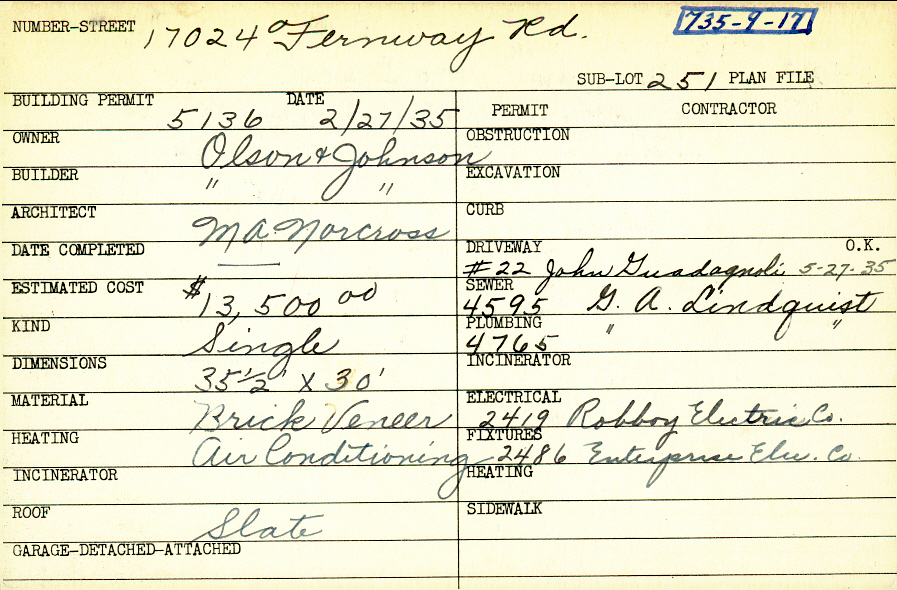 NUMBER-STREET 17024 Fernway Rd. 735-9-17
SUB-LOT 251 PLAN FILE
BUILDING PERMIT 5136 DATE 2/27/35
OWNER Olson & Johnson
BUILDER " "
ARCHITECT MA Norcross
DATE COMPLETED —
ESTIMATED COST $13,500 00
KIND Single
DIMENSIONS 35½' X 30'
MATERIAL Brick Veneer
HEATING Air Conditioning
INCINERATOR
ROOF Slate
GARAGE-DETACHED-ATTACHED
PERMIT CONTRACTOR
OBSTRUCTION
EXCAVATION
CURB
DRIVEWAY O.K.
#22 John Guadagnoli 5-27-35
SEWER
4595 G. A. Lindquist
PLUMBING " "
4765
INCINERATOR
ELECTRICAL
2419 Robboy Electric Co.
FIXTURES
2486 Enterprise Elec. Co.
HEATING
SIDEWALK